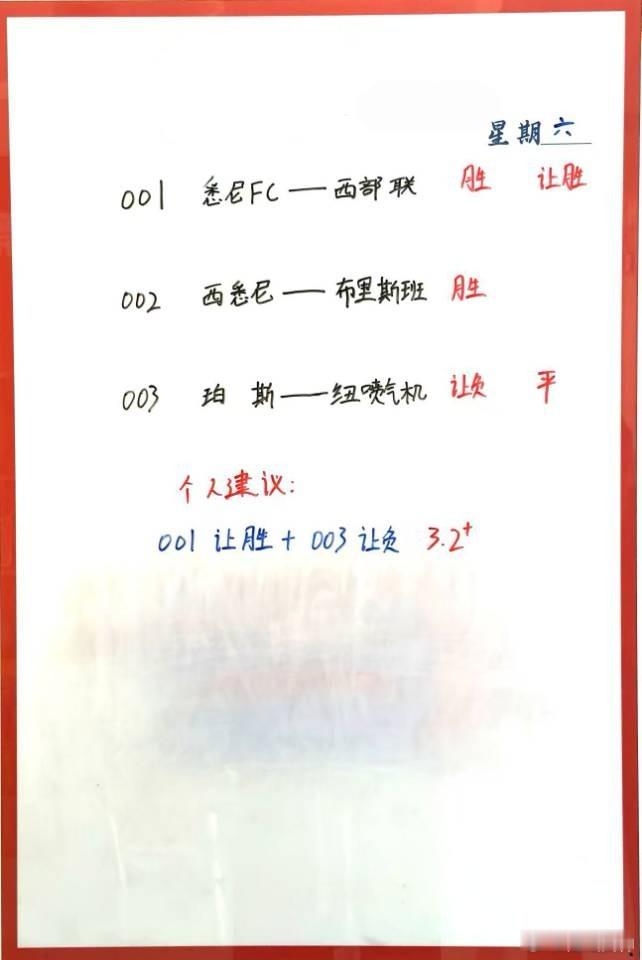 星期六
001 悉尼FC — 西部联 胜 让胜
002 西悉尼 — 布里斯班 胜
003 珀斯 — 纽喷气机 让负 平
个人建议:
001 让胜 + 003 让负 3.2+